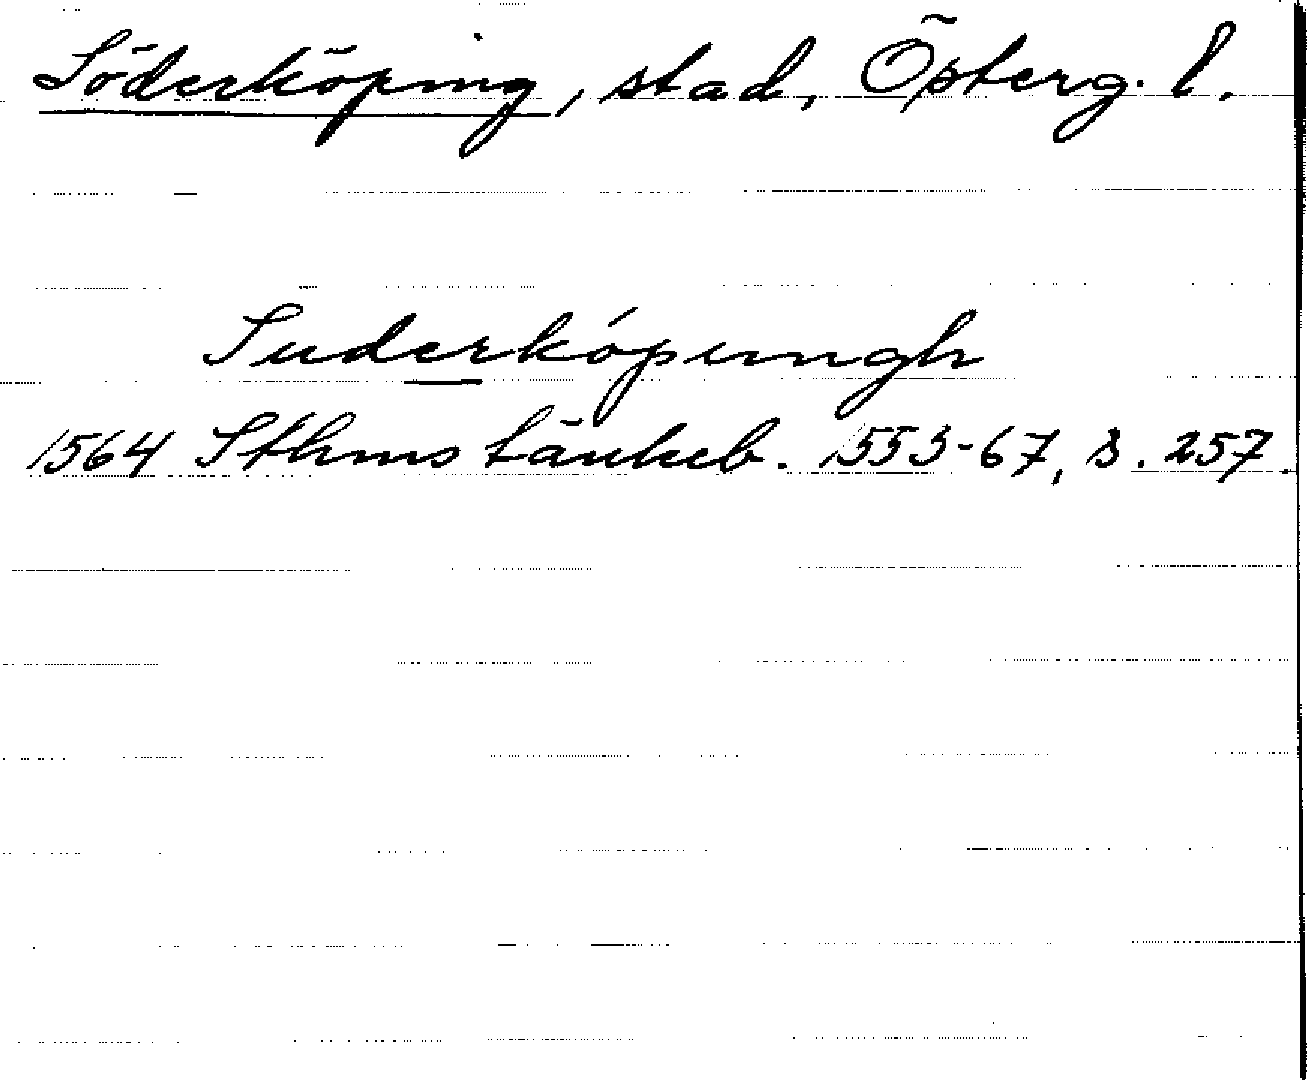 Söderköping, stad, Österg. l.
Suderkópungh
1564 Sthms tänkeb. 1553-67, s. 257.